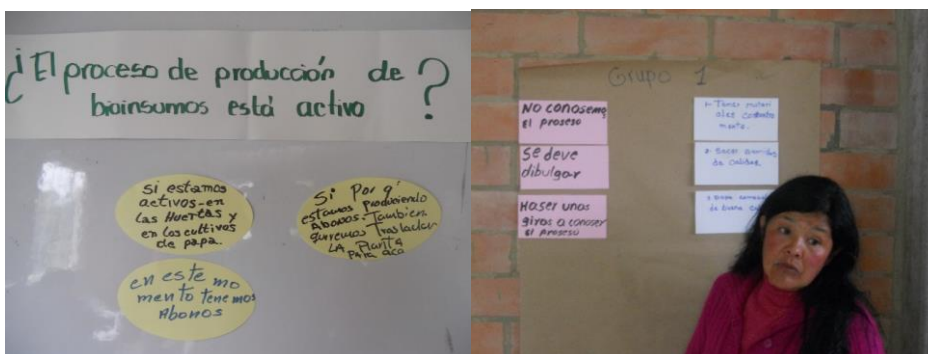 ¿El proceso de producción de
bioinsumos está activo?
Si estamos
activos-en
las Huertas y
en los cultivos
de papa.
Si Por q'
estamos produciendo
Abonos. Tambien
queremos Trasladar
LA Planta
PARA aca
en este mo
mento tenemos
Abonos
Grupo 1
No conosemos
el proseso
Se deve
dibulgar
Haser unos
giros a conoser
el proseso
Tener materi
ales
mento.
Sacar
de calidad
de buena